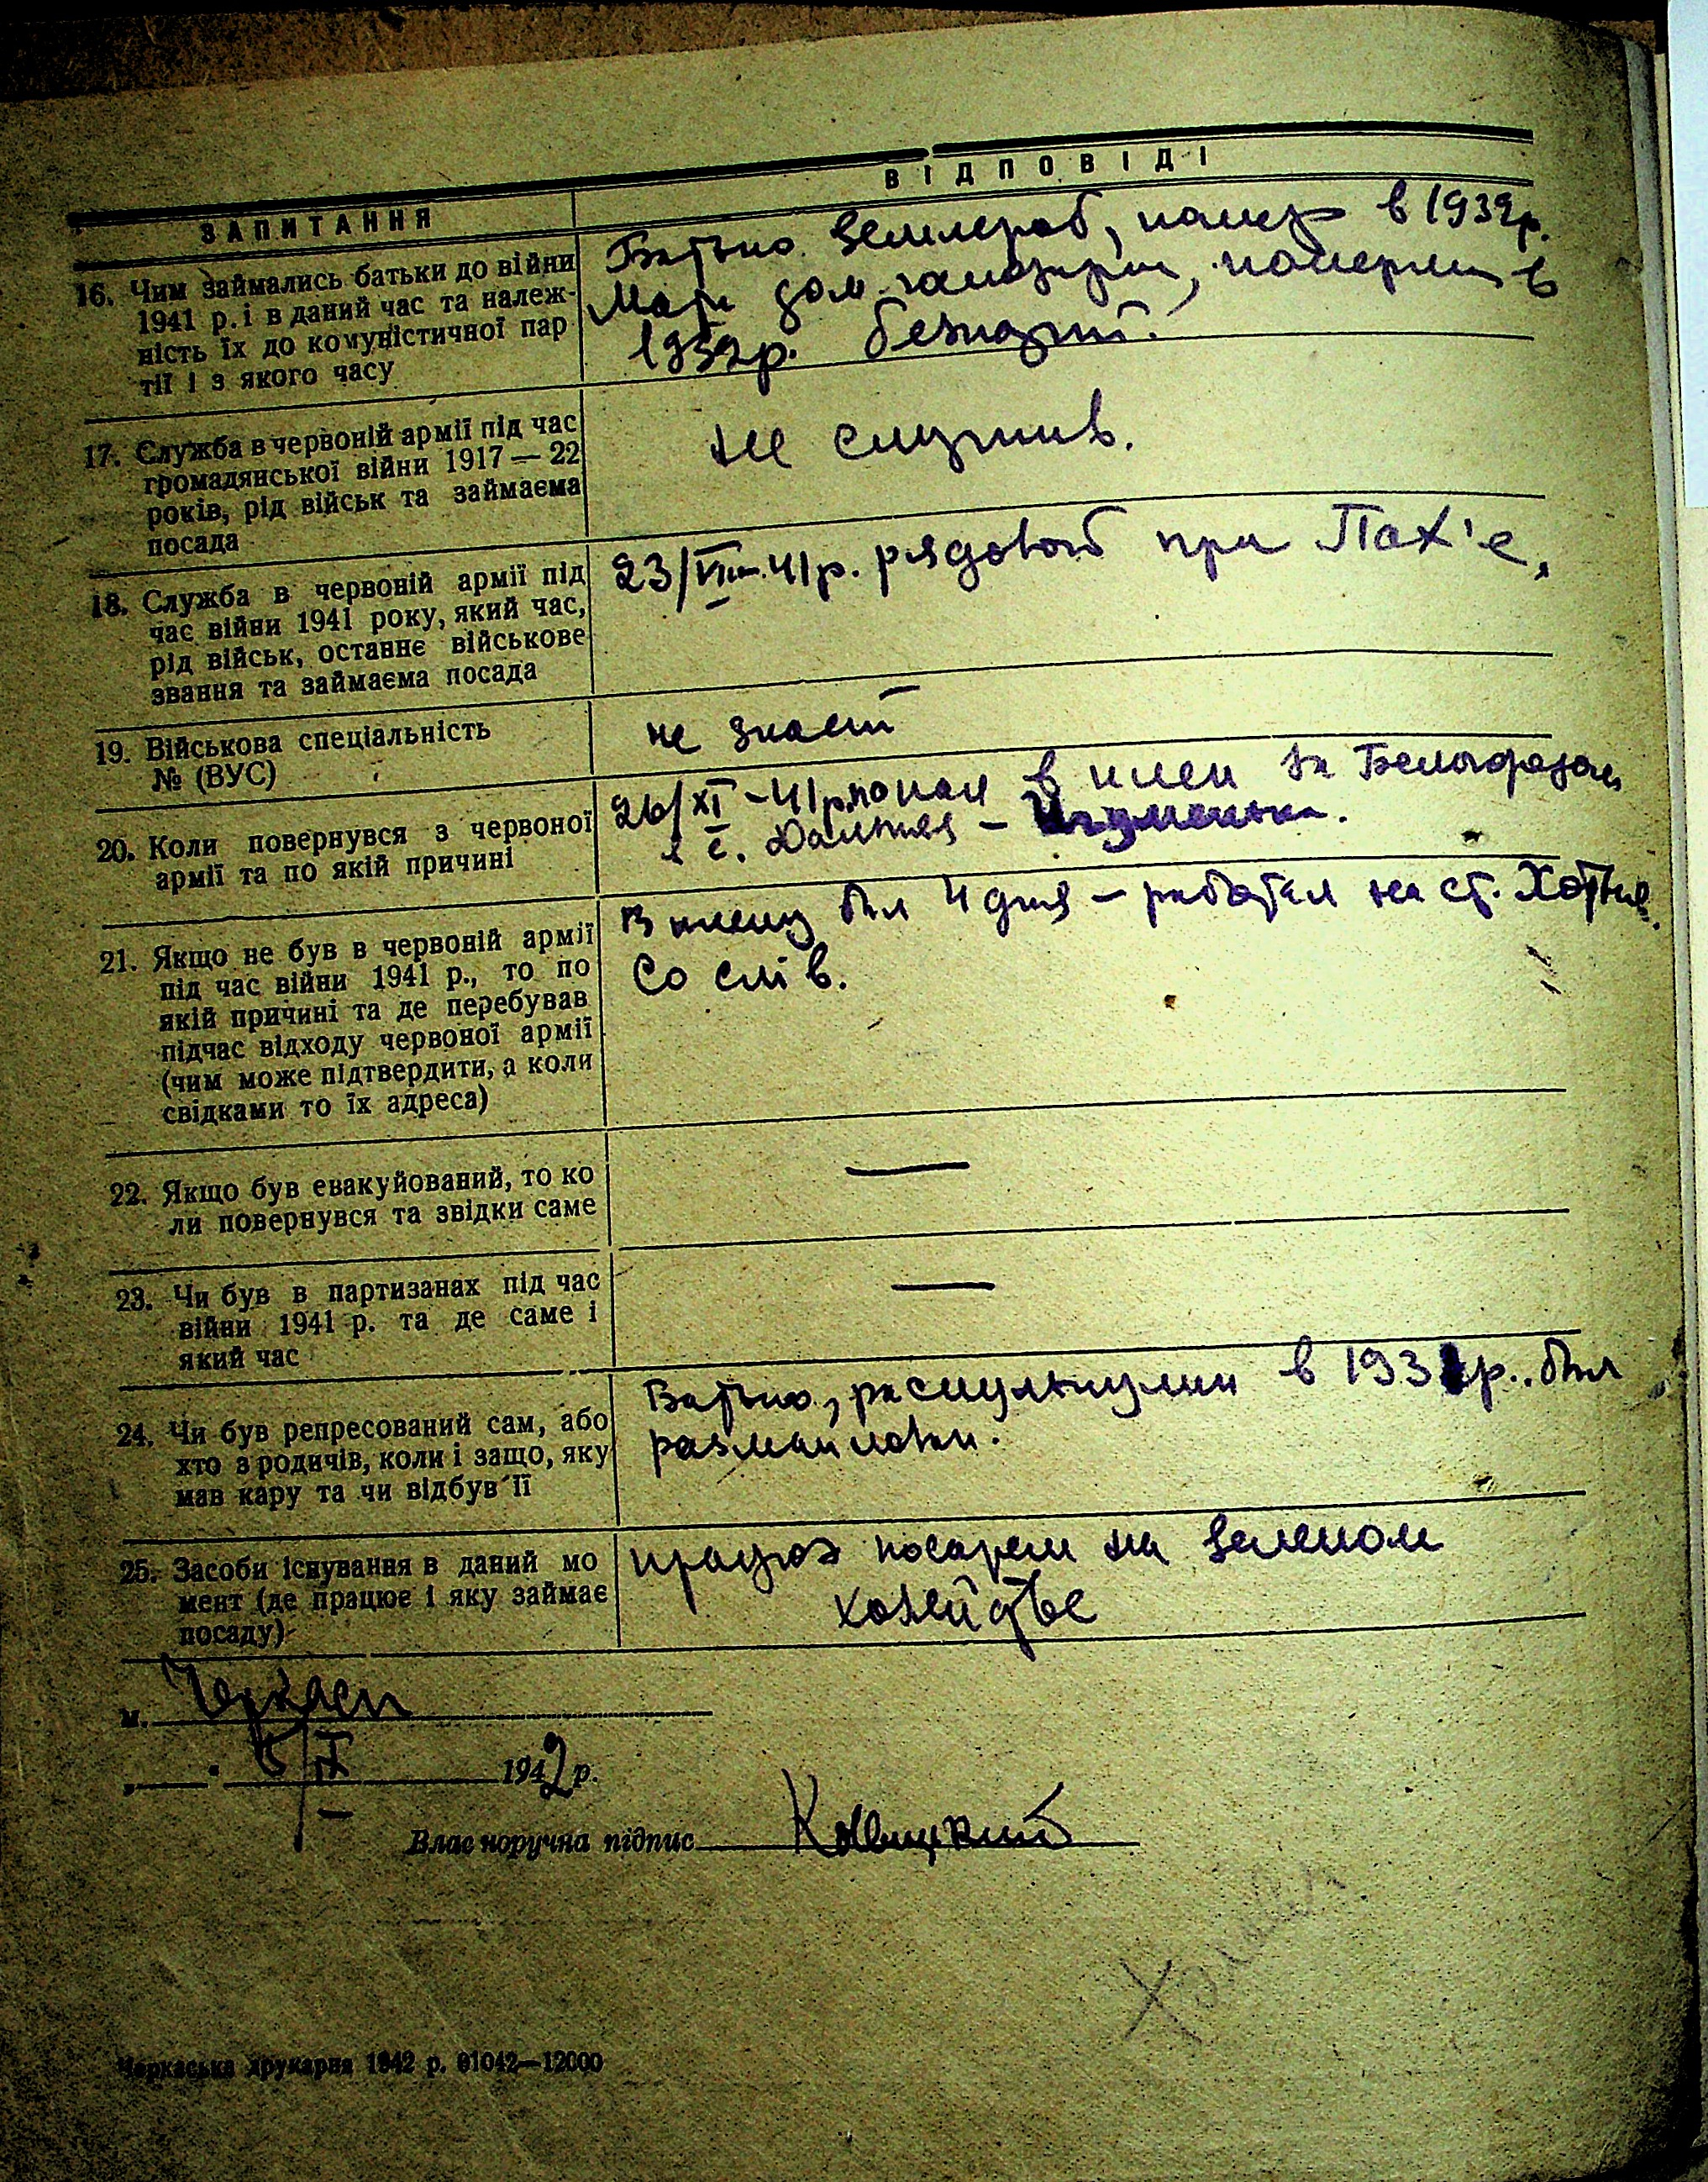 ВІДПОВІДІ
ЗАПИТАННЯ
16. Чим займались батьки до війни
1941 р. і в даний час та належ-
ність їх до комуністичної пар
тії і з якого часу
Батько землероб, помер в 1932р.
Мати дом. господарка, померла в
1932р. безпарт.
17. Служба в червоній армії під час
громадянської війни 1917 — 22
років, рід військ та займаєма
посада
не служив.
18. Служба в червоній армії під
час війни 1941 року, який час,
рід військ, останнє військове
звання та займаєма посада
23/VIII-41р. рядовой при Пах'е,
19. Військова спеціальність
№ (ВУС)
не знает
20. Коли повернувся з червоної
армії та по якій причині
26/XI-41р. попал в плен за Белгородом
в с. Дальняя - Игуменька.
21. Якщо не був в червоній армії
під час війни 1941 р., то по
якій причині та де перебував
підчас відходу червоної армії
(чим може підтвердити, а коли
свідками то їх адреса)
В плену был 4 дня - работал на ст.
Со слів.
22. Якщо був евакуйований, то ко
ли повернувся та звідки саме
—
23. Чи був в партизанах під час
війни 1941 р. та де саме і
який час
—
24. Чи був репресований сам, або
хто з родичів, коли і защо, яку
мав кару та чи відбув її
Батько, раскулькулили в 193 р.. был
25. Засоби існування в даний мо
мент (де працює і яку займає
посаду)
працює на зеленом
хозяйстве
м. Черкаси
„ " 5/IX 1942 р.
Власноручна підпис
Черкаська друкарня 1942 р. 01042—12000